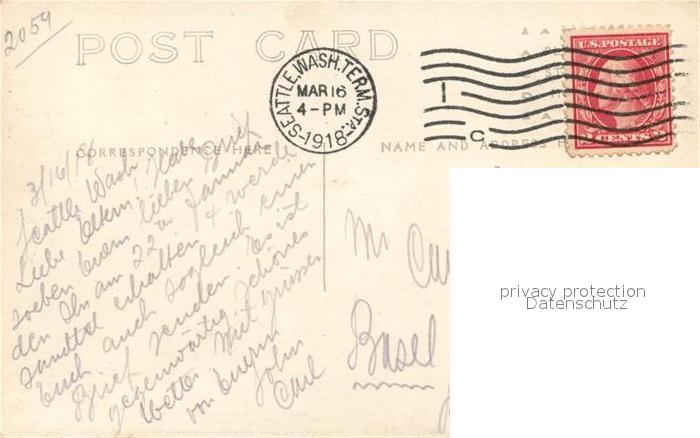 2059
POST CARD
SEATTLE, WASH. TERM. STA.
MAR 16
4-PM
1918
U.S. POSTAGE
2 CENTS 2
C
CORRESPONDENCE HERE
NAME AND ADDRESS H
3/16/18
Seattle Wash.
Liebe Eltern! Habe
soeben Euern lieben Brief
den Ihr am 22 ten Januar
erhalten & werde
Euch auch sogleich einen
Brief senden. Es ist
gegenwärtig schönes
Wetter. Mit Grüssen
von Euerm
John
Carl
Mr
Basel
privacy protection
Datenschutz